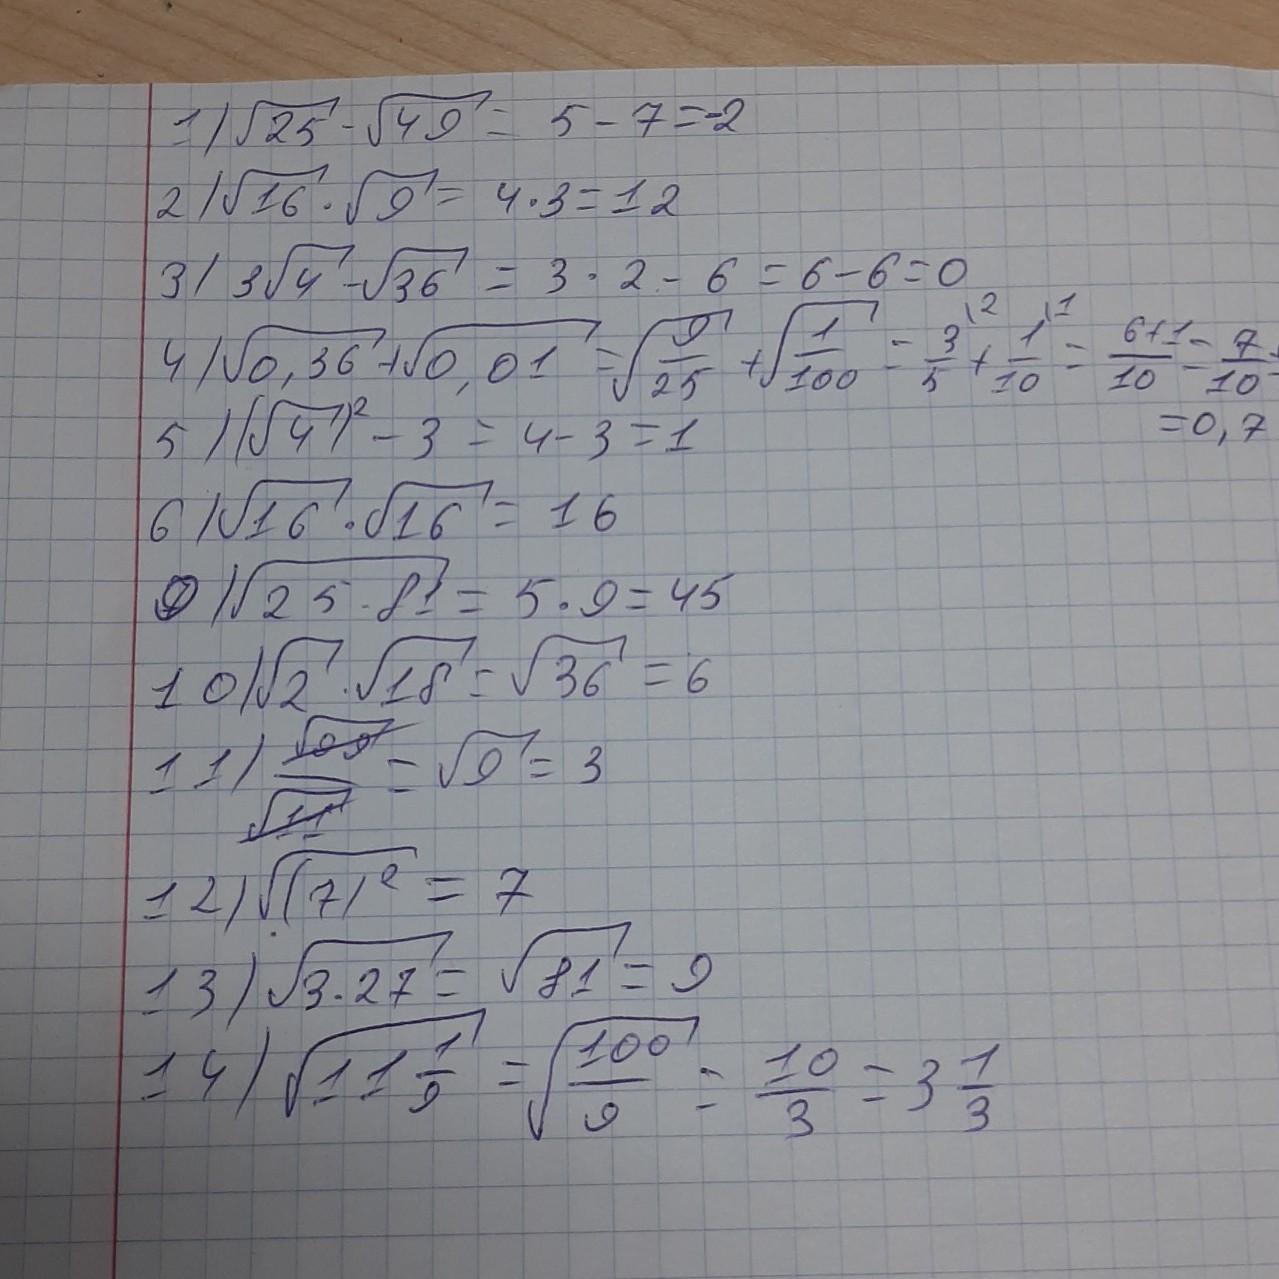 1) √25 - √49 = 5 - 7 = -2
2) √16 · √9 = 4 · 3 = 12
3) 3√4 - √36 = 3 · 2 - 6 = 6 - 6 = 0
4) √0,36 + √0,01 = √(9/25) + √(1/100) = 3/5 \2 + 1/10 \1 = (6+1)/10 = 7/10 =
= 0,7
5) (√4)² - 3 = 4 - 3 = 1
6) √16 · √16 = 16
9) √25·81 = 5 · 9 = 45
10) √2 · √18 = √36 = 6
11) √99/√11 = √9 = 3
12) √(7)² = 7
13) √3·27 = √81 = 9
14) √11 1/9 = √(100/9) = 10/3 = 3 1/3